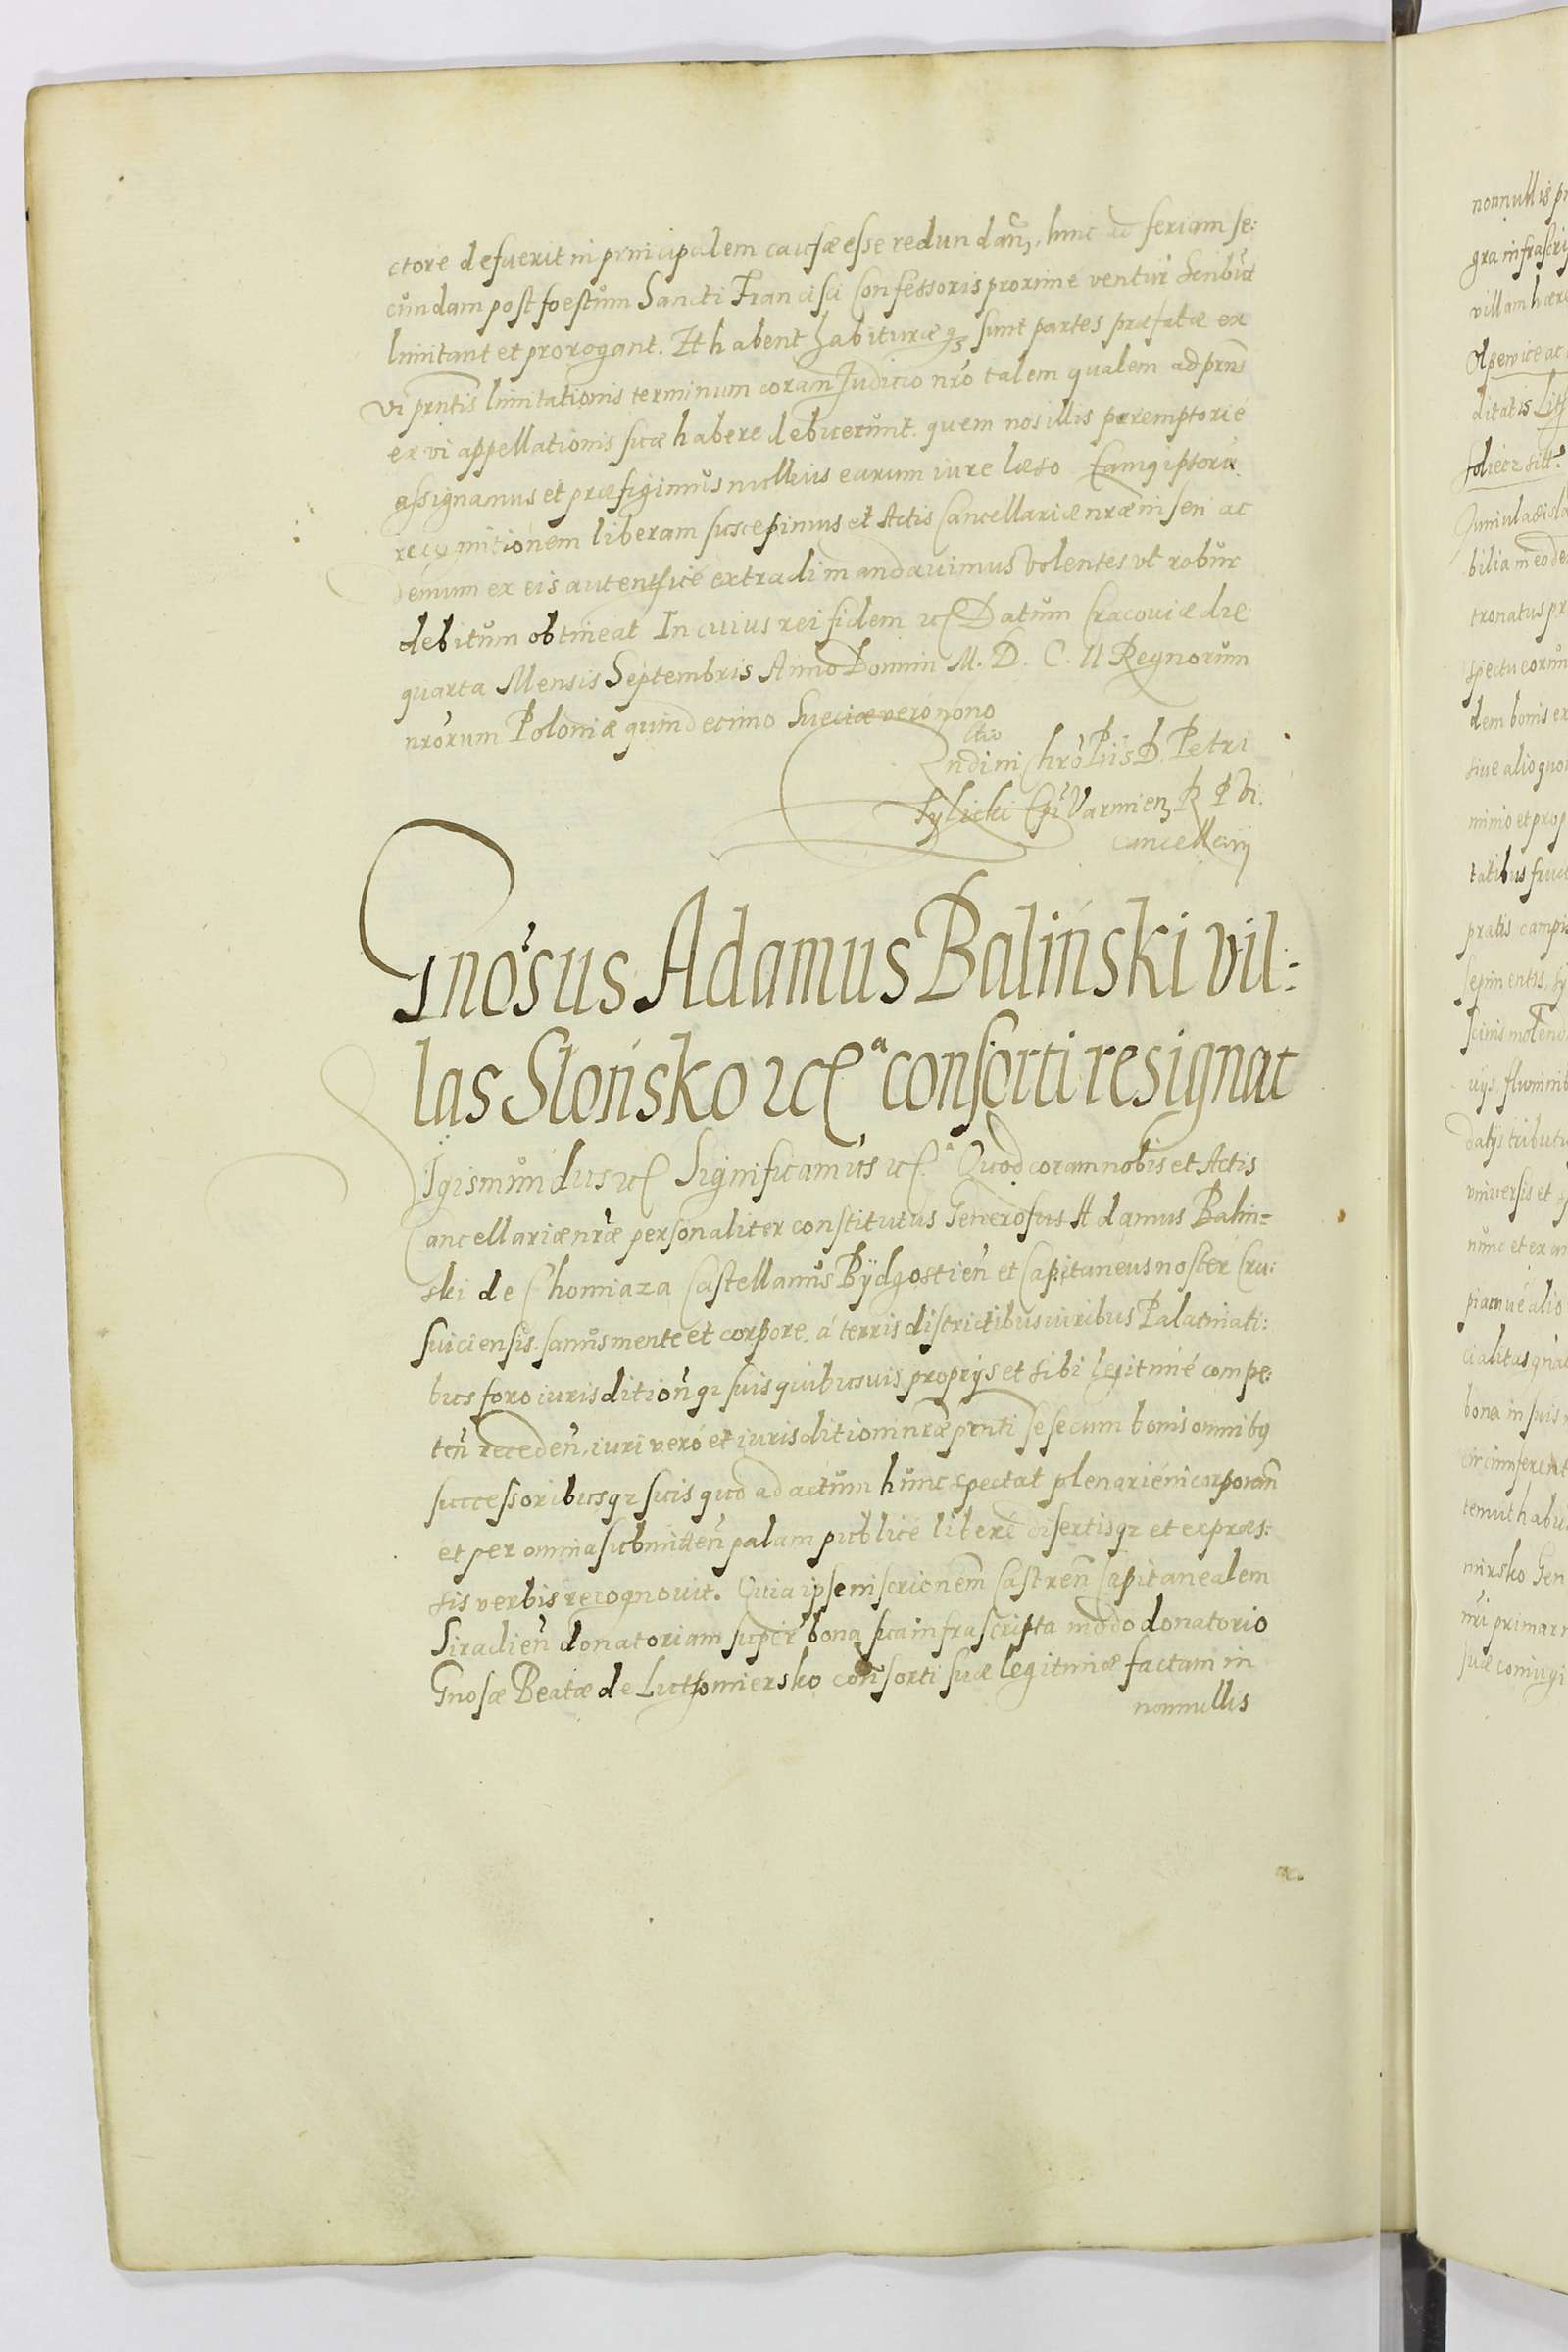 ctore defuerit in principalem causæ esse redundan̄, hinc ad feriam se:
cundam post foestum Sancti Francisci Confessoris proxime ventur̄
limitant et prorogant. Et habent habituræq3 sunt partes præfatæ ex
vi prntis limitationis terminum coram Judicio nrō talem qualem ad prns
ex vi appellationis suæ habere debuerunt. quem nos illis peremptorié
assignamus et præfigimus nullius earum iure læso. Eamq iptorū
recognitionem liberam suscepimus et Actis Cancellariæ nræ inseri ac
demum ex eis autenticé extradi mandauimus Volentes vt robur
debitum obtineat In cuius rei fidem etc Datum Cracoviæ die
quarta Mensis Septembris Anno Domini M. D. C. II Regnorum
nrōrum Poloniæ quindecimo Sueciæ veró nono
Rndi in Chrō Pris D. Petri
Tylicki Epī Varmien3 R P Vi.
cancellarij
Gnōsus Adamus Baliński vil:
las Słońsko etc.ª consorti resignat
Sigismundus etc Significamus etc.ª Quod coram nobis et Actis
Cancellariæ nræ personaliter constitutus Generosus Adamus Balin=
ski de Chomiaza Castellanus Bydgostien̄ et Capitaneus noster Cru:
suiciensis. sanus mente et corpore. á terris districtibus iuribus Palatinati:
bus foro iurisdition̄q2 suis quibusuis proprijs et sibi legitimé compe:
ten̄ receden̄. iuri veró et iurisditioni nræ prnti sese cum bonis omnibq
successoribusq2 suis quo ad actum hunc spectat plenarié incorporan̄
et per omnia submitten̄ palam publicé liberé disertisq2 et expræs:
sis verbis recognouit. Quia ipse inscrionem̄ Castren̄ Capitanealem
Siradien̄ donatoriam super bona sua infrascripta modo donatorio
Gnosæ Beatæ de Luthomiersko consorti suæ legitimæ factam in
nonnullis